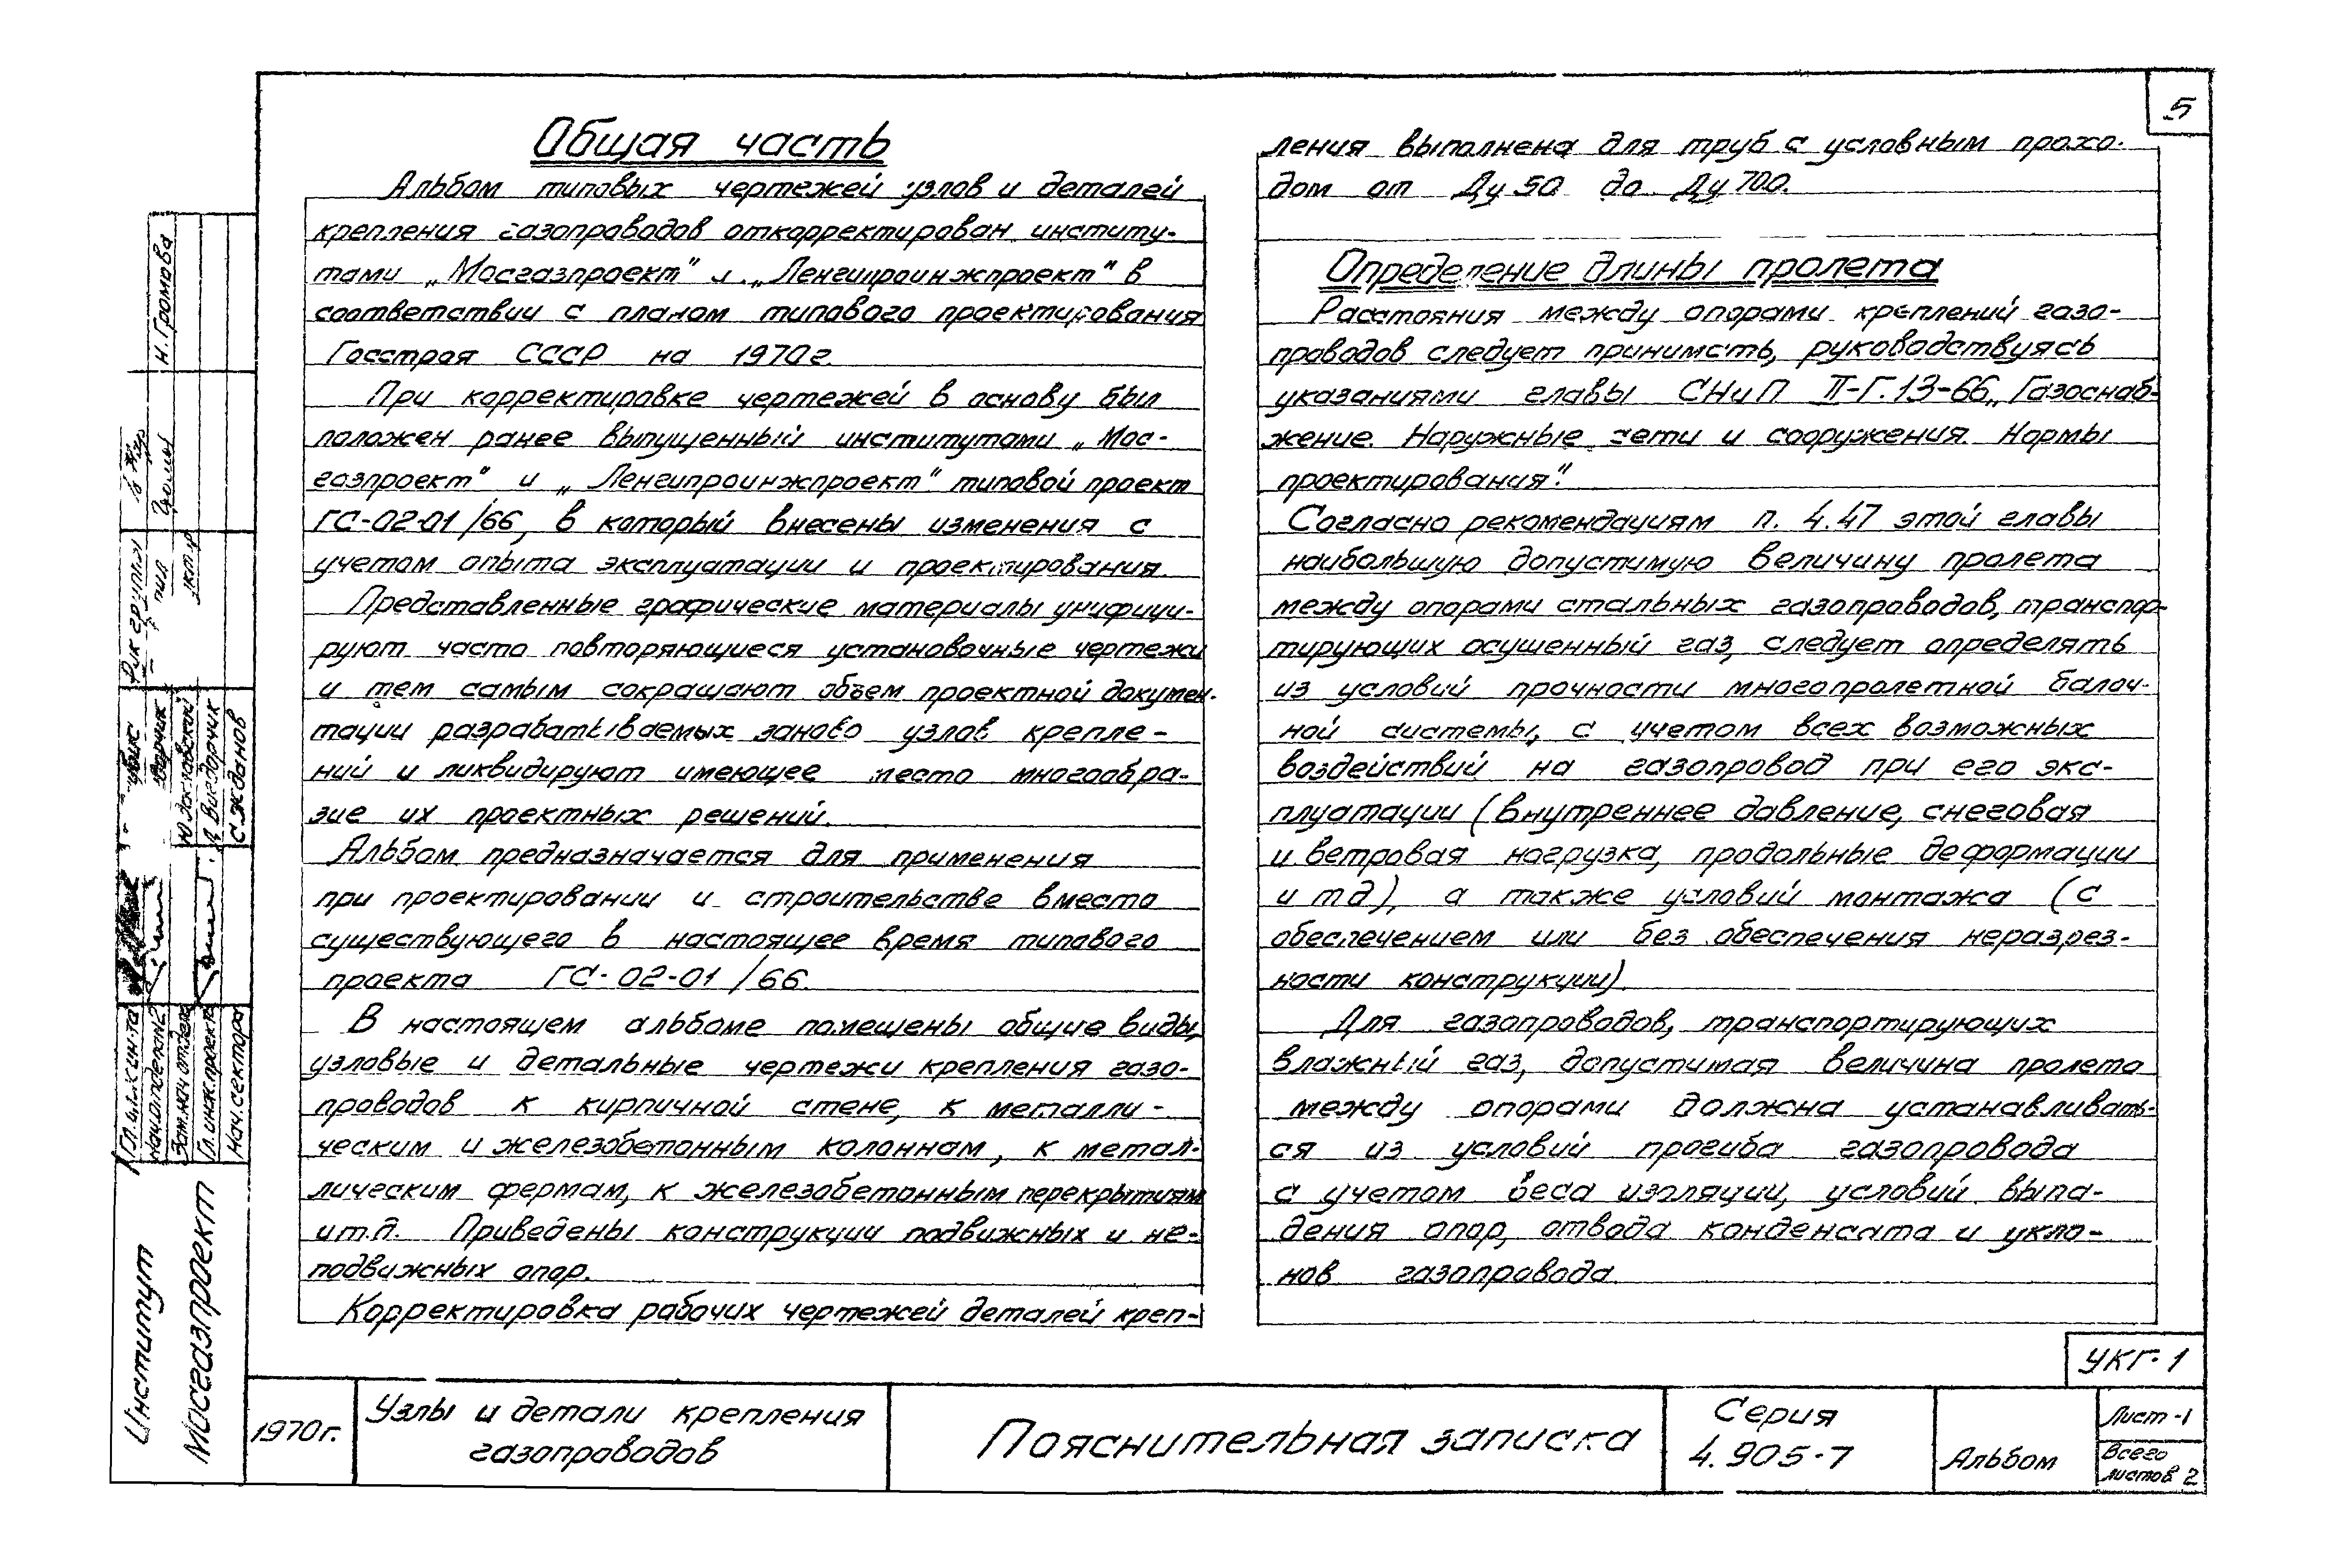 5
Общая часть
Альбом типовых чертежей узлов и деталей
крепления газопроводов откорректирован институ-
тами „Мосгазпроект" и „Ленгипроинжпроект" в
соответствии с планом типового проектирования
Госстроя СССР на 1970г.
При корректировке чертежей в основу был
положен ранее выпущенный институтами „Мос-
газпроект" и „Ленгипроинжпроект" типовой проект
ГС-02-01/66, в который внесены изменения с
учетом опыта эксплуатации и проектирования.
Представленные графические материалы унифици-
руют часто повторяющиеся установочные чертежи
и тем самым сокращают объем проектной докумен-
тации разрабатываемых заново узлов крепле-
ний и ликвидируют имеющее место многообра-
зие их проектных решений.
Альбом предназначается для применения
при проектировании и строительстве вместо
существующего в настоящее время типового
проекта ГС-02-01/66.
В настоящем альбоме помещены общие виды,
узловые и детальные чертежи крепления газо-
проводов к кирпичной стене, к металли-
ческим и железобетонным колоннам, к метал-
лическим фермам, к железобетонным перекрытиям
и т.д. Приведены конструкции подвижных и не-
подвижных опор.
Корректировка рабочих чертежей деталей креп-
ления выполнена для труб с условным прохо-
дом от Ду 50 до Ду 700.
Определение длины пролета
Расстояния между опорами креплений газо-
проводов следует принимать, руководствуясь
указаниями главы СНиП II-Г.13-66 „Газоснаб-
жение. Наружные сети и сооружения. Нормы
проектирования".
Согласно рекомендациям п. 4.47 этой главы
наибольшую допустимую величину пролета
между опорами стальных газопроводов, транспор-
тирующих осушенный газ, следует определять
из условий прочности многопролетной балоч-
ной системы, с учетом всех возможных
воздействий на газопровод при его экс-
плуатации (внутреннее давление, снеговая
и ветровая нагрузка, продольные деформации
и т д), а также условий монтажа (с
обеспечением или без обеспечения неразрез-
ности конструкции).
Для газопроводов, транспортирующих
влажный газ, допустимая величина пролета
между опорами должна устанавливать-
ся из условий прогиба газопровода
с учетом веса изоляции, условий выпа-
дения опор, отвода конденсата и укло-
нов газопровода.
УКГ-1
1970г.
Узлы и детали крепления
газопроводов
Пояснительная записка
Серия
4.905-7
Альбом
Лист-1
Всего
листов 2
Институт
Мосгазпроект
Гл.инж.ин-та
Нач.отдела №2
Зам.нач отдела
Гл.инж.проекта
Нач.сектора
С.Жданов
Рук группы
Н.Громова